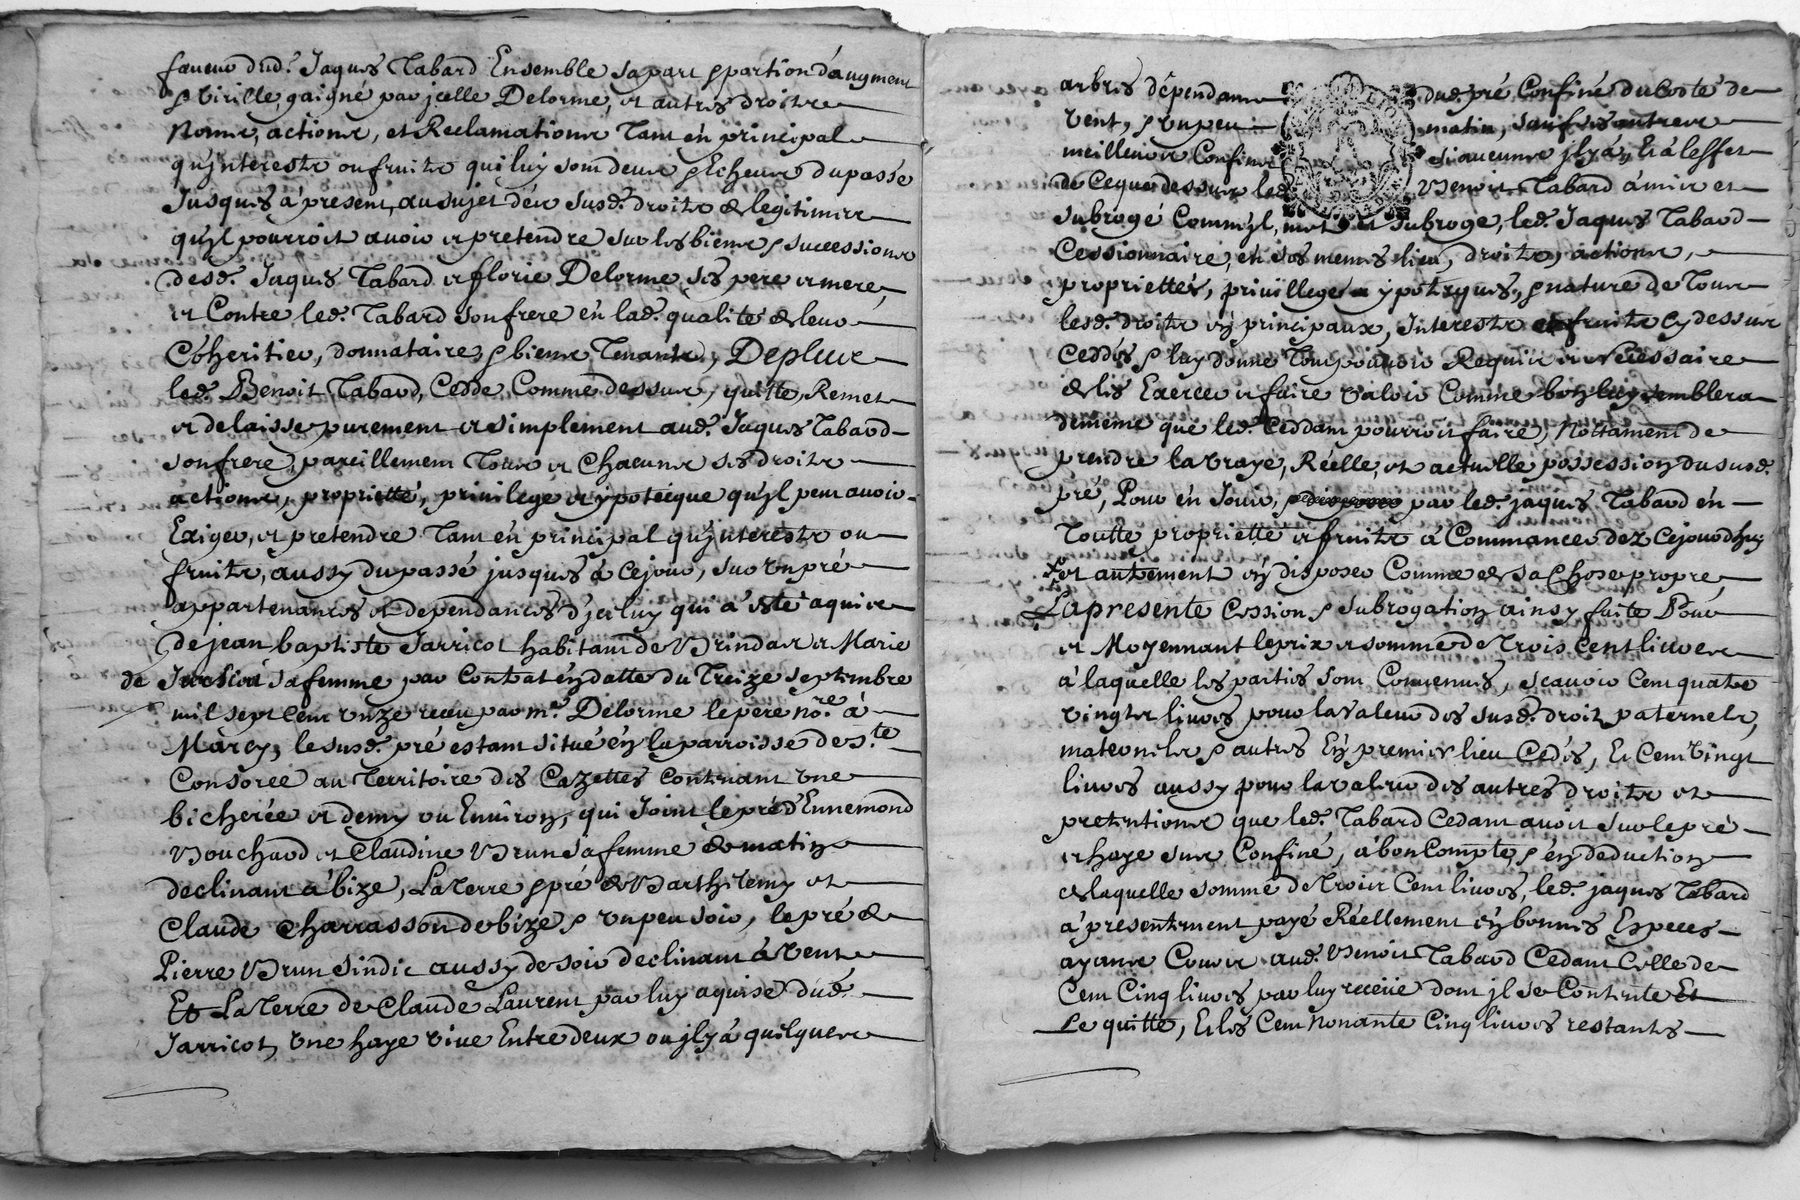 faveur dud. Jaques Tabard Ensemble sa part & portion d'augment
& virille gaigné par jcelle Delorme, et autres droitz
Noms, actions, et Reclamations Tant en principal
qu'jnterestz ou fruitz qui luy sont deus & Echeus du passé
Jusques à present, au sujet des susd. droitz & legitimes
qu'jl pourroit avoir et pretendre sur les biens & successions
desd. Jaques Tabard et florie Delorme ses pere et mere,
et Contre led. Tabard son frere en lad. qualité de leur
Coheritier, donnataire, & biens Tenants, De plus
led. Benoit Tabard, Cedde Comme dessus, quitte, Remet
et delaisse purement et simplement aud. Jaques Tabard
son frere, pareillement Tous et Chacuns ses droitz
actions, proprietté, privilege et ypotecque qu'jl peut avoir
Exiger, et pretendre Tant en principal qu'jnterestz ou
fruitz, aussy du passé jusques à ce jour, sur un pré
appartenances et dependances d'jcelluy qui a esté aquis
de jean baptiste Jarricot habitant de Brindas et Marie
de sa femme, par Contrat en datte du Treize septembre
mil sept cent unze receu par me. Delorme le pere nore. à
Marcy, le susd. pré estant situé en la parroisse de ste.
Consorce au Territoire des Cazettes contenant une
bicherée et demy ou Environ, qui Joint le pré d'Ennemond
Bouchard et Claudine Brun sa femme de matin
declinant à bize, La Terre & pré de Barthilemy et
Claude Charrasson de bize & un peu soir, le pré de
Pierre Brun sindic aussy de soir declinant à vent
Et La Terre de Claude Laurent par luy aquise dud.
Jarricot, une haye vive Entre deux ou jl y a quelques
arbres dépendants dud. pré Confiné du Costé de
vent, & un peu matin, sauf ses autres
meilleurs Confins si aucuns jl y a, Et à l'effet
de Ce que dessus led. Benoit Tabard à mis et
subrogé Comm'jl, met et subroge, led. Jaques Tabard
Cessionnaire, en ses memes lieu, droitz, actions,
propriettés, privilleges ypoteques, & nature de Tous
lesd. droitz en principaux, Interestz et fruitz cy dessus
Ceddés & luy donne Tout pouvoir Requis et Necessaire
de les Exercer et faire valoir Comme bon luy semblera
de meme que led. Ceddant pourroit faire, Nottament de
prendre la vraye, Réelle, et actuelle possession du susd.
pré, Pour en Jouir, par led. jaques Tabard en
Toutte proprietté et fruitz à Commancer dez Cejourd'huy
et autrement en disposer Comme de sa Chose propre,
La presente Cession & subrogation ainsy faite Pour
et Moyennant le prix et somme de Trois Cent livres
à laquelle les parties sont Convenues, scavoir Cent quatre
vingtz livres pour la valeur des susd. droit paternelz,
maternelz & autres En premier lieu Cedés, Et Cent Vingt
livres aussy pour la valeur des autres droitz et
pretentions que led. Tabard Cedant avoit sur le pré
et haye sus Confiné, à bon Compte & en deduction
de laquelle somme de Trois Cent livres, led. jaques Tabard
à presentement payé Réellement en bonnes Especes
ayants Cours aud. Benoit Tabard Cedant Celle de
Cent Cinq livres par luy receüe dont jl se Contente Et
Le quitte, Et les Cent Nonante Cinq livres restantes